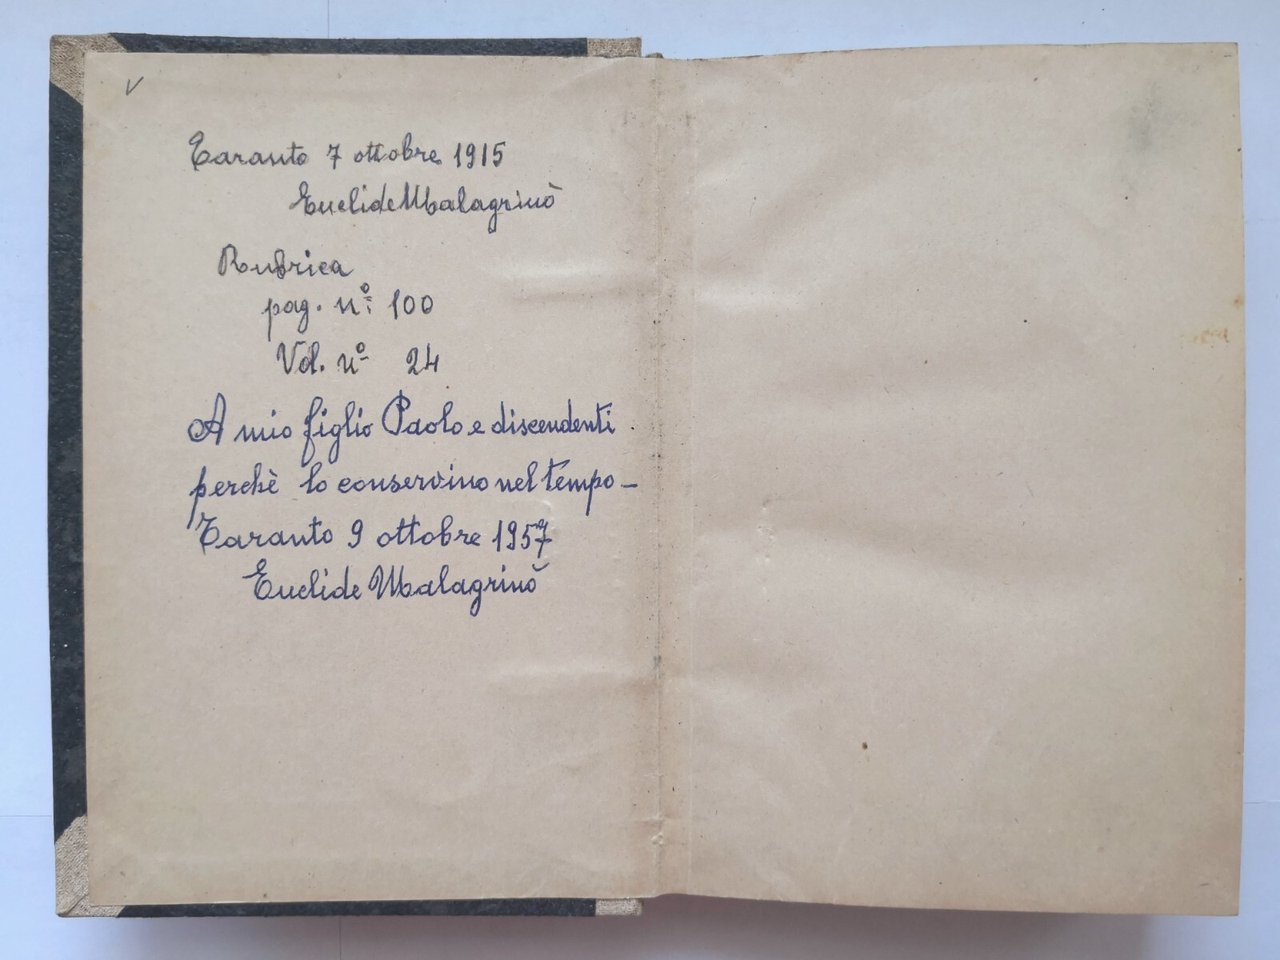 Taranto 7 ottobre 1915
Euclide Malagrinò
Rubrica
pag. nº: 100
Vol. nº 24
A mio figlio Paolo e discendenti
perchè lo conservino nel tempo –
Taranto 9 ottobre 1957
Euclide Malagrinò